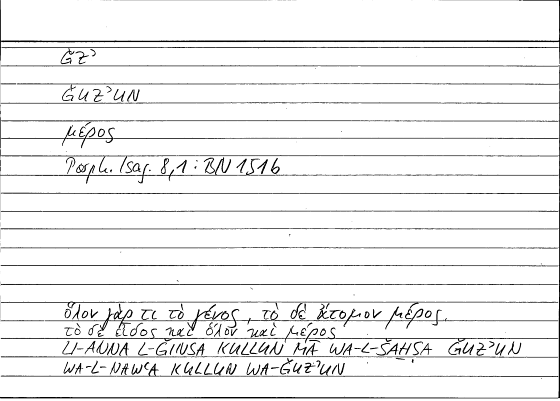 ǦZʾ
ǦUZʾUN
μέρος
Porph. Isag. 8,1 : BN 151b
ὅλον γάρ τι τὸ γένος, τὸ δὲ ἄτομον μέρος.
τὸ δὲ εἶδος καὶ ὅλον καὶ μέρος
LI-ANNA L-ǦINSA KULLUN MĀ WA-L-ŠAḪṢA ǦUZʾUN
WA-L-NAWʿA KULLUN WA-ǦUZʾUN